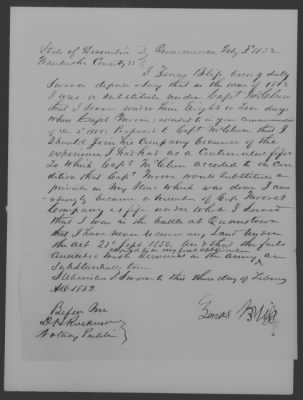 State of Wisconsin } Oconomowoc Feby 3d 1852
Waukesha County } ss
I Zenas Bliss being duly
Sworn depose & say that in the war of 1812
I was a Substitute under Capt McClure
that I Served under him Eight or Ten days
when Capt Moore
of Co Proposed to Capt McClure that I
Should Join his Company because of the
experience I had had as a Continental fifer
to Which Capt McClure acceded to on Con
dition that Capt Moore would Substitute a
private in My Place Which was done I accor
dingly became a Member of Capt Moores
Company as a fifer under Which I Served
that I was in the battle at Queenstown
that I have never received any Land under
the act 28th Sept 1850 that the facts
connected with Services in the army are
Substantially true
Subscribed & Sworn to this third day of February
AD 1852
Before Me
Notary Public
Zenas Bliss